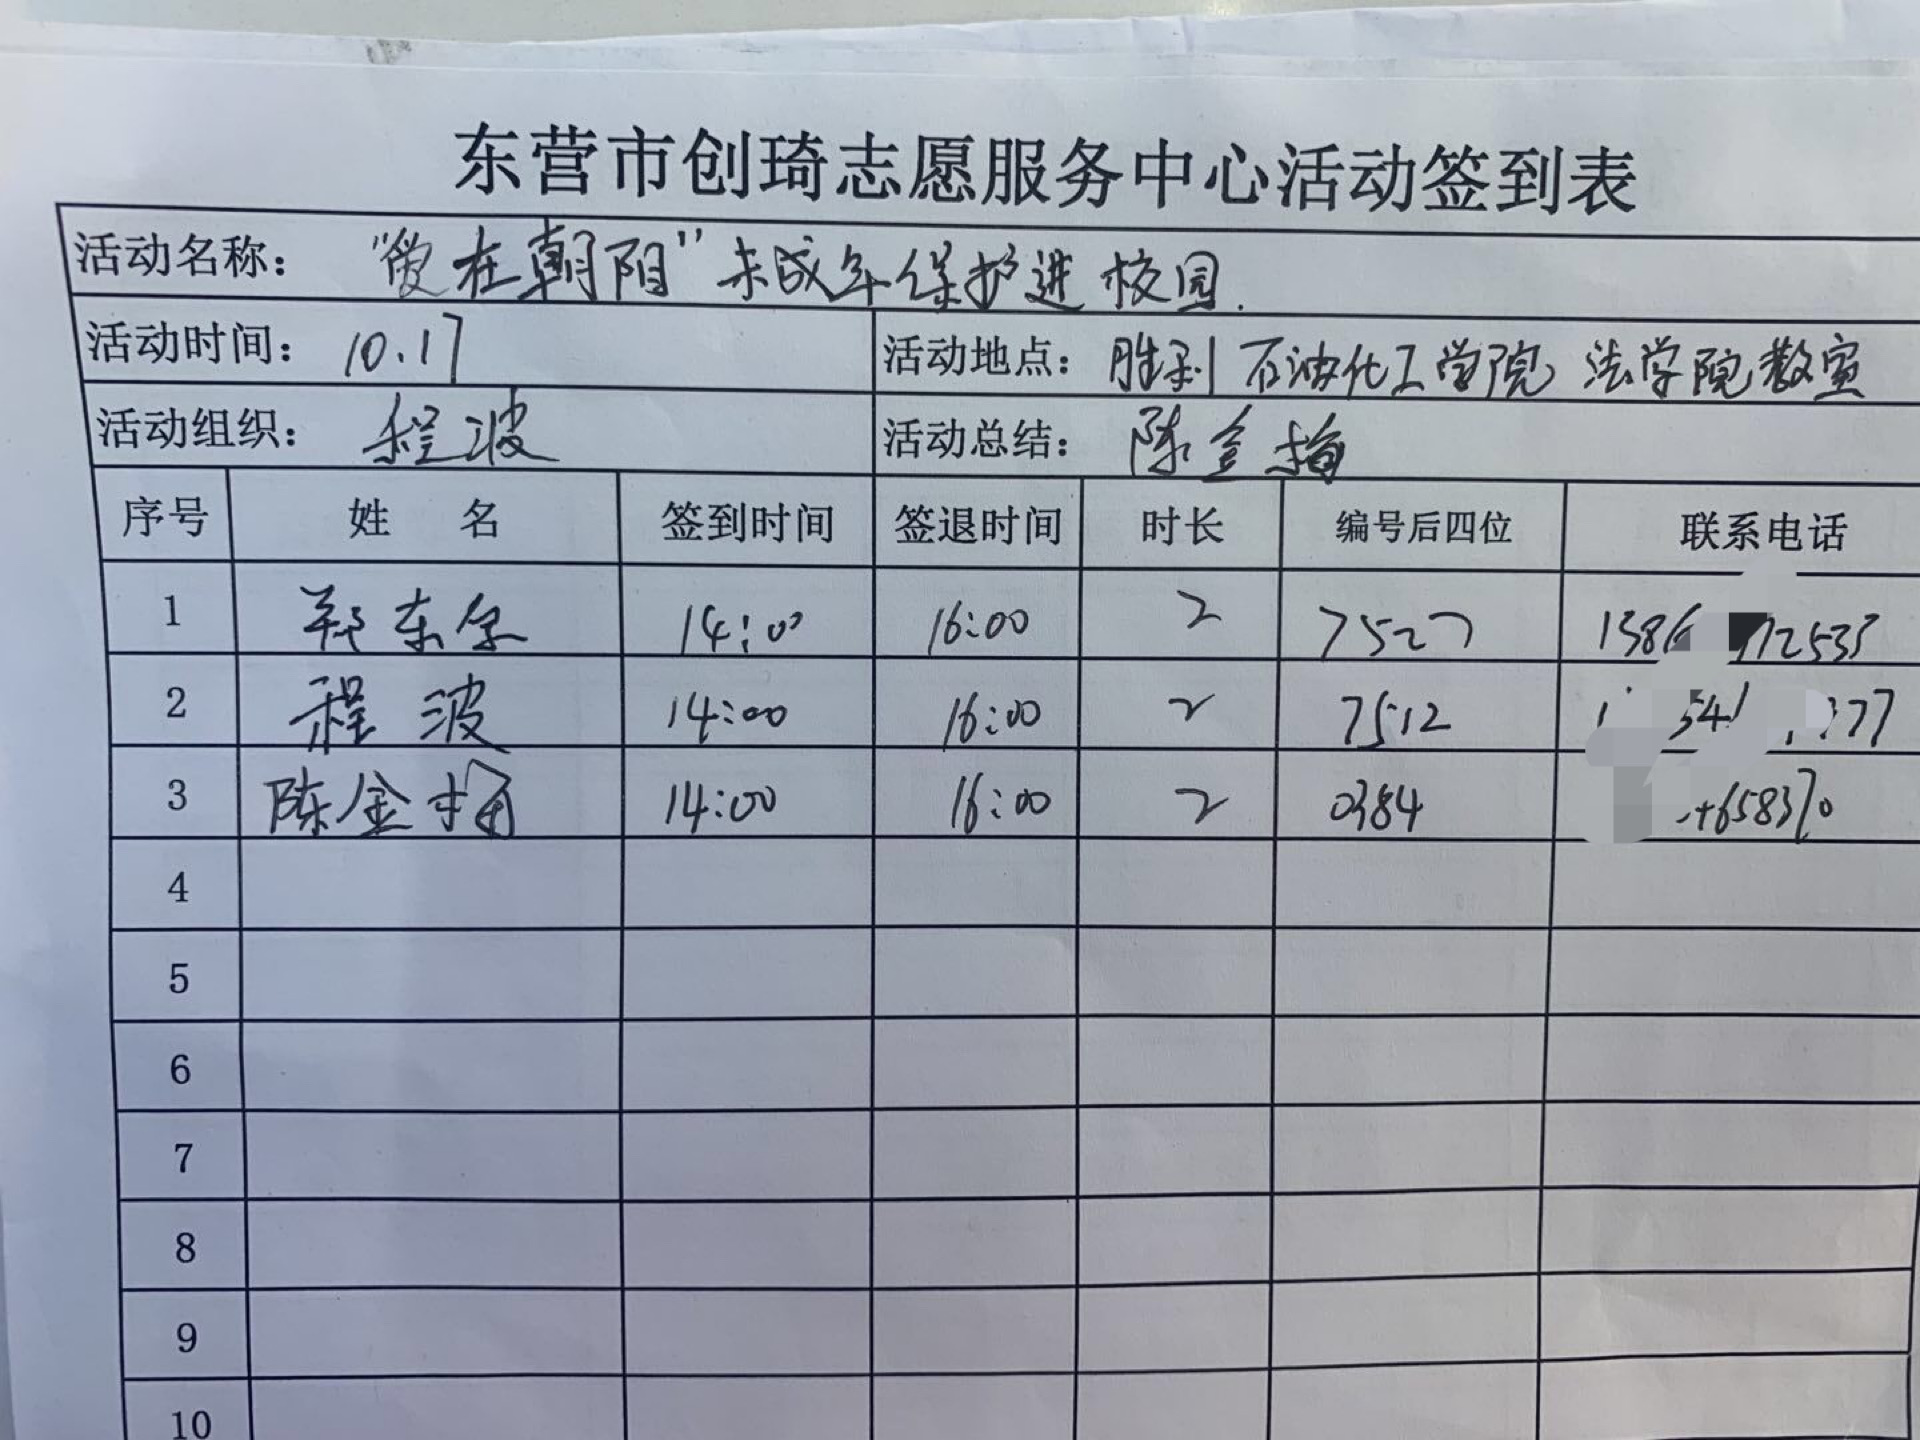 东营市创琦志愿服务中心活动签到表
活动名称： "爱在朝阳"未成年保护进校园.
活动时间： 10.17 活动地点： 胜利石油化工学院 法学院教室
活动组织： 程波 活动总结： 陈金梅
序号 姓 名 签到时间 签退时间 时长 编号后四位 联系电话
1 东 14:00 16:00 2 7527
2 程波 14:00 16:00 2 7512
3 陈金梅 14:00 16:00 2 0384
4
5
6
7
8
9
10